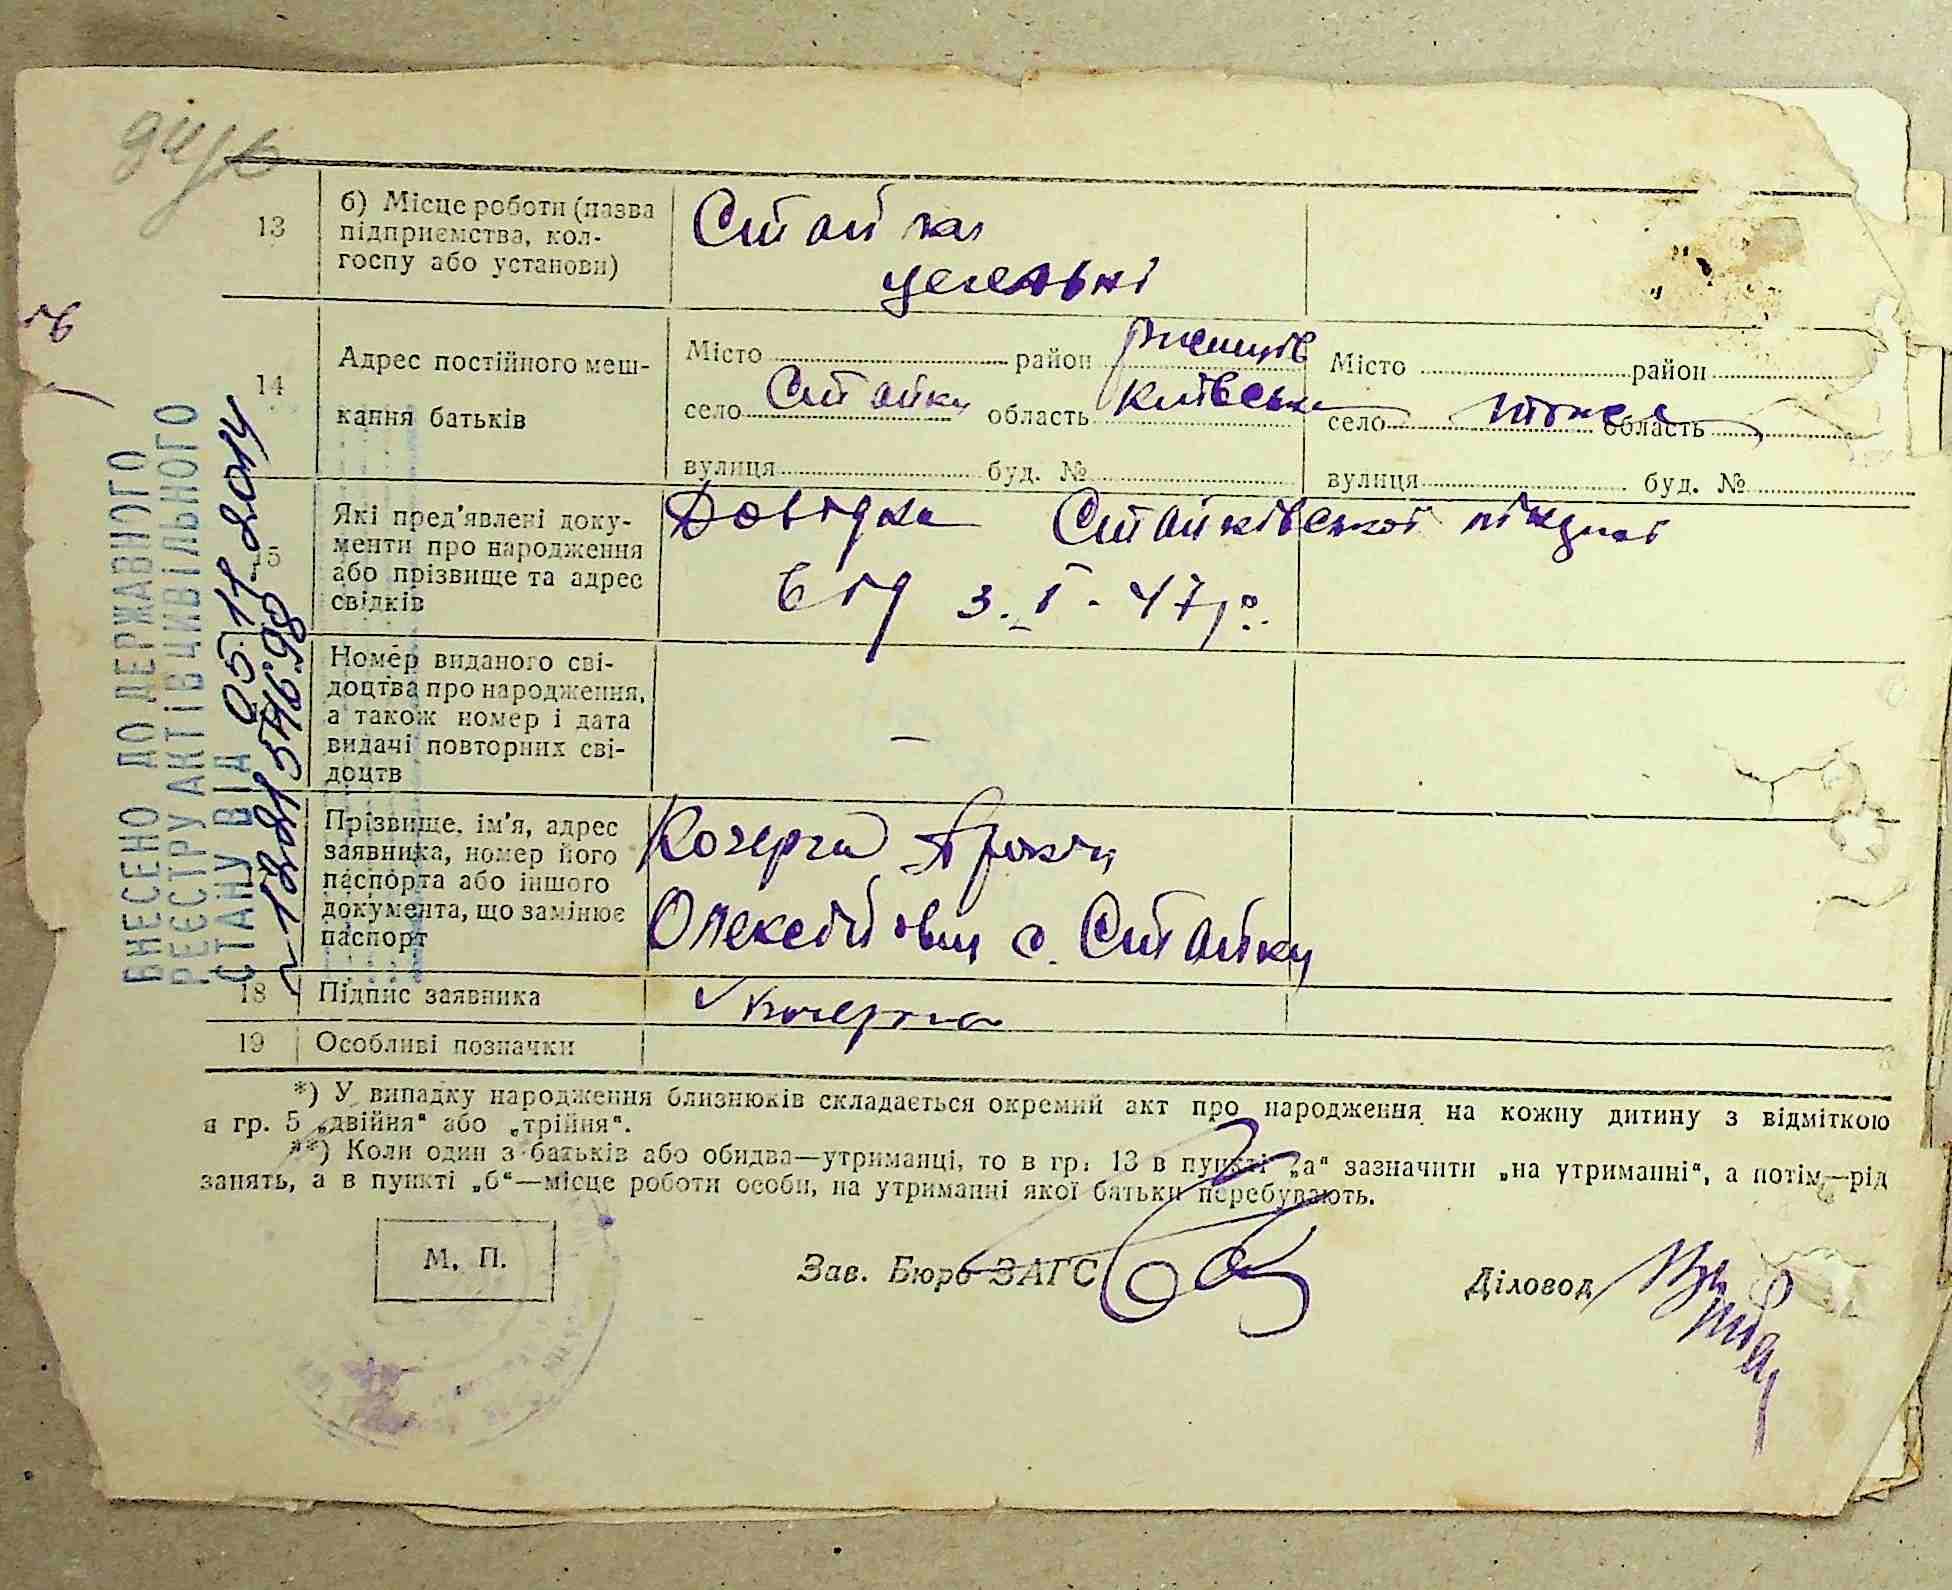 13
б) Місце роботи (назва
підприємства, кол-
госпу або установи)
Стайки
цегельні
14
Адрес постійного меш-
кання батьків
Місто район Ржищів Місто район
село Стайки область Київська село область
вулиця буд. № вулиця буд. №
15
Які пред'явлені доку-
менти про народження
або прізвище та адрес
свідків
Довідка Стайківської лікарні
від 3.I-47р.
Номер виданого сві-
доцтва про народження,
а також номер і дата
видачі повторних сві-
доцтв
—
Прізвище, ім'я, адрес
заявника, номер його
паспорта або іншого
документа, що замінює
паспорт
Кочерга
Олексійович с. Стайки
18 Підпис заявника Кочерга
19 Особливі позначки
*) У випадку народження близнюків складається окремий акт про народження на кожну дитину з відміткою
в гр. 5 „двійня“ або „трійня“.
**) Коли один з батьків або обидва—утриманці, то в гр. 13 в пункті „а“ зазначити „на утриманні“, а потім—рід
занять, а в пункті „б“—місце роботи особи, на утриманні якої батьки перебувають.
М. П.
Зав. Бюро ЗАГС
Діловод
ВНЕСЕНО ДО ДЕРЖАВНОГО
РЕЄСТРУ АКТІВ ЦИВІЛЬНОГО
СТАНУ ВІД 05.11.2014